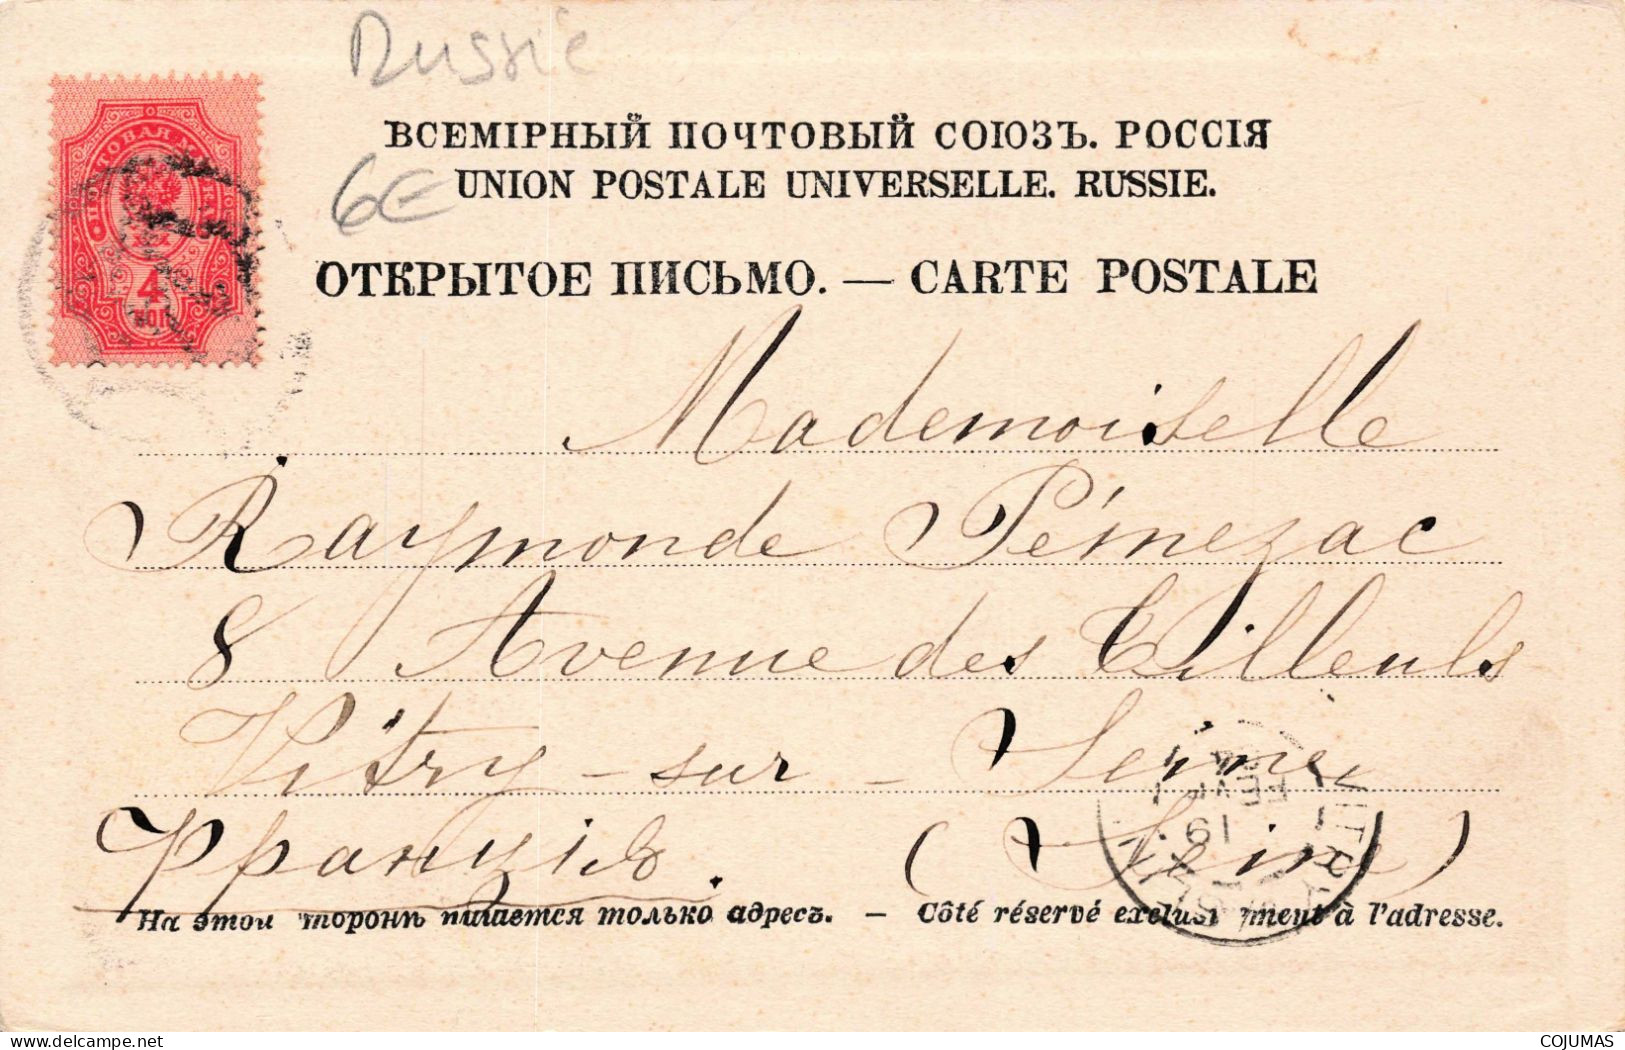 Russie
ПОЧТОВАЯ
4
КОП
ВСЕМІРНЫЙ ПОЧТОВЫЙ СОЮЗЪ. РОССІЯ
6€
UNION POSTALE UNIVERSELLE. RUSSIE.
ОТКРЫТОЕ ПИСЬМО. — CARTE POSTALE
Mademoiselle
Raymonde Pémezac
8 Avenue des Tilleuls
Vitry-sur-Seine
Францiя. (Seine)
FEVR
19
VITRY
На этой сторонѣ пишется только адресъ. — Côté réservé exclusivement à l'adresse.
COJUMAS